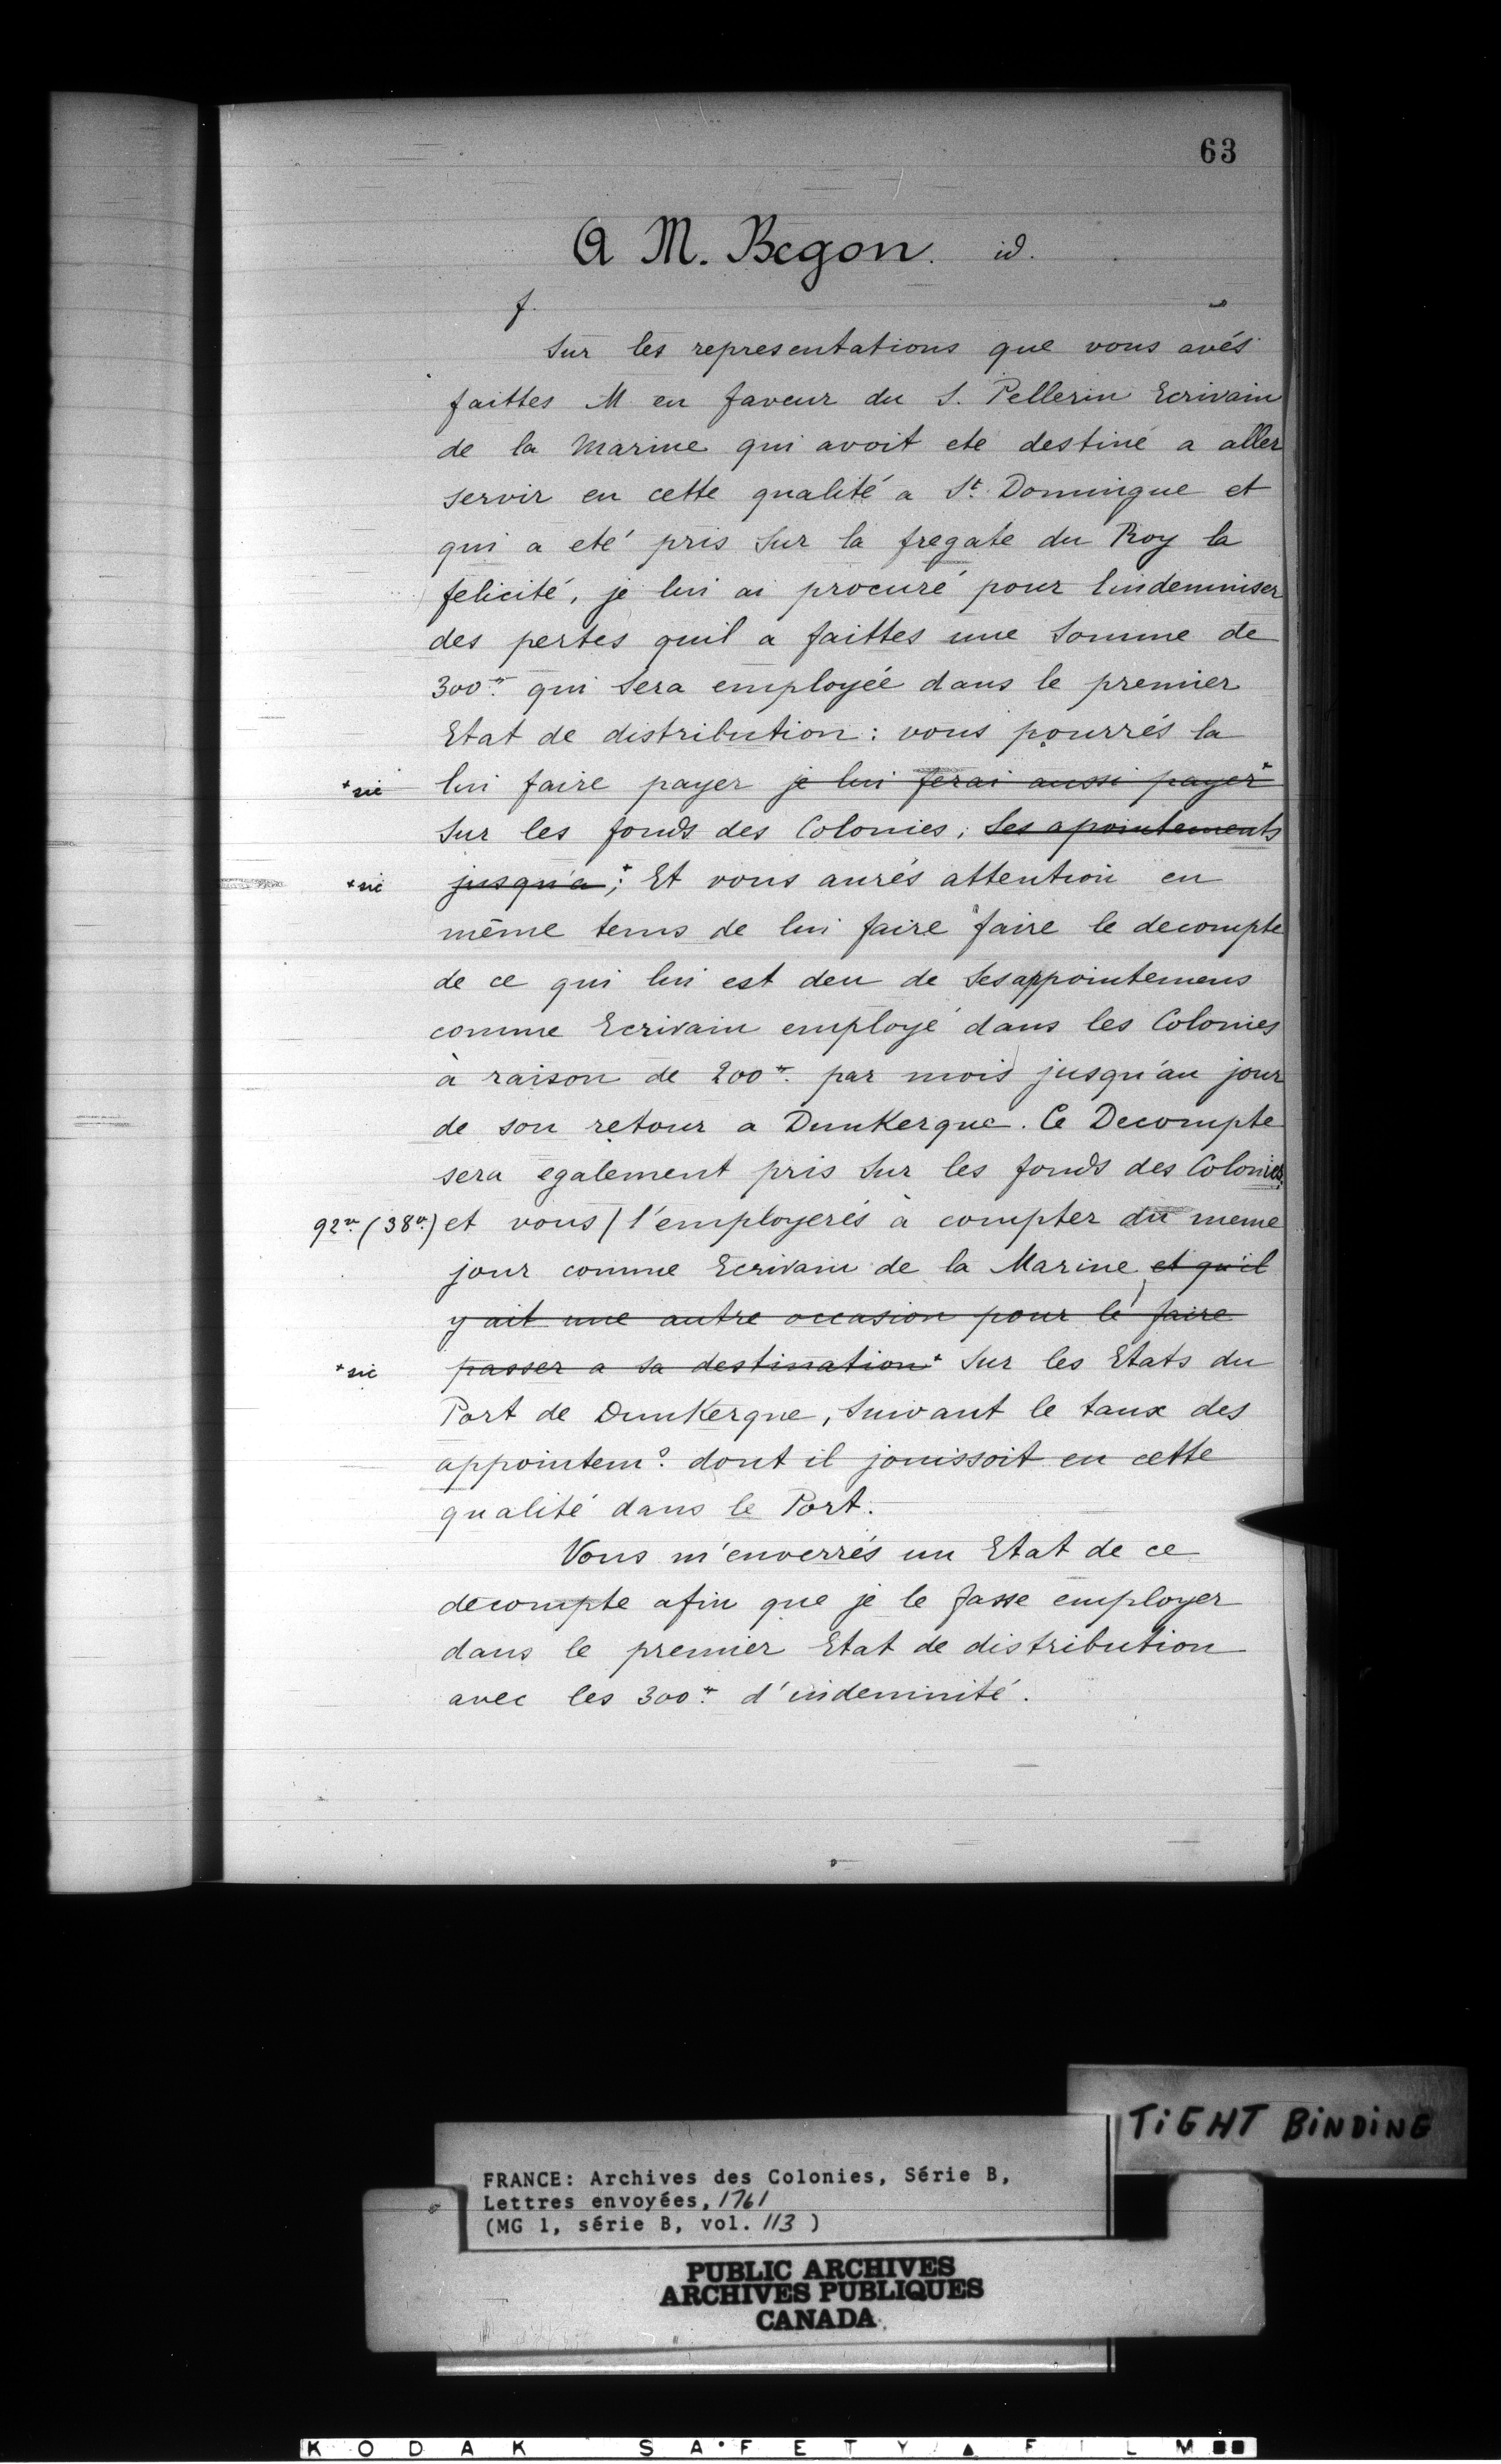 63
A M. Begon. id.
f.
Sur les representations que vous avés
faittes M en faveur du S. Pellerin Ecrivain
de la Marine qui avoit eté destiné a aller
servir en cette qualité a St. Domingue et
qui a eté pris sur la fregate du Roy la
felicité, je lui ai procuré pour lindemniser
des pertes quil a faittes une somme de
300tt. qui sera employée dans le premier
Etat de distribution : vous pourrés la
*sic lui faire payer je lui ferai aussi payer*
sur les fonds des Colonies, ses apointements
*sic jusqu'a *; Et vous aurés attention en
même tems de lui faire faire le decompte
de ce qui lui est deu de ses appointemens
comme Ecrivain employé dans les Colonies
à raison de 200tt. par mois jusqu'au jour
de son retour a Dunkerque. Ce Decompte
sera egalement pris sur les fonds des Colonies,
92vo. (38vo.) et vous / l'employerés à compter du meme
jour comme Ecrivain de la Marine et qu'il
y ait une autre occasion pour le faire
*sic passer a sa destination* sur les Etats du
Port de Dunkerque, suivant le taux des
appointems. dont il jouissoit en cette
qualité dans le Port.
Vous m'enverrés un Etat de ce
decompte afin que je le fasse employer
dans le premier Etat de distribution
avec les 300tt. d'indemnité.
TIGHT BINDING
FRANCE: Archives des Colonies, Série B,
Lettres envoyées, 1761
(MG 1, série B, vol. 113 )
PUBLIC ARCHIVES
ARCHIVES PUBLIQUES
CANADA
KODAK SAFETY FILM